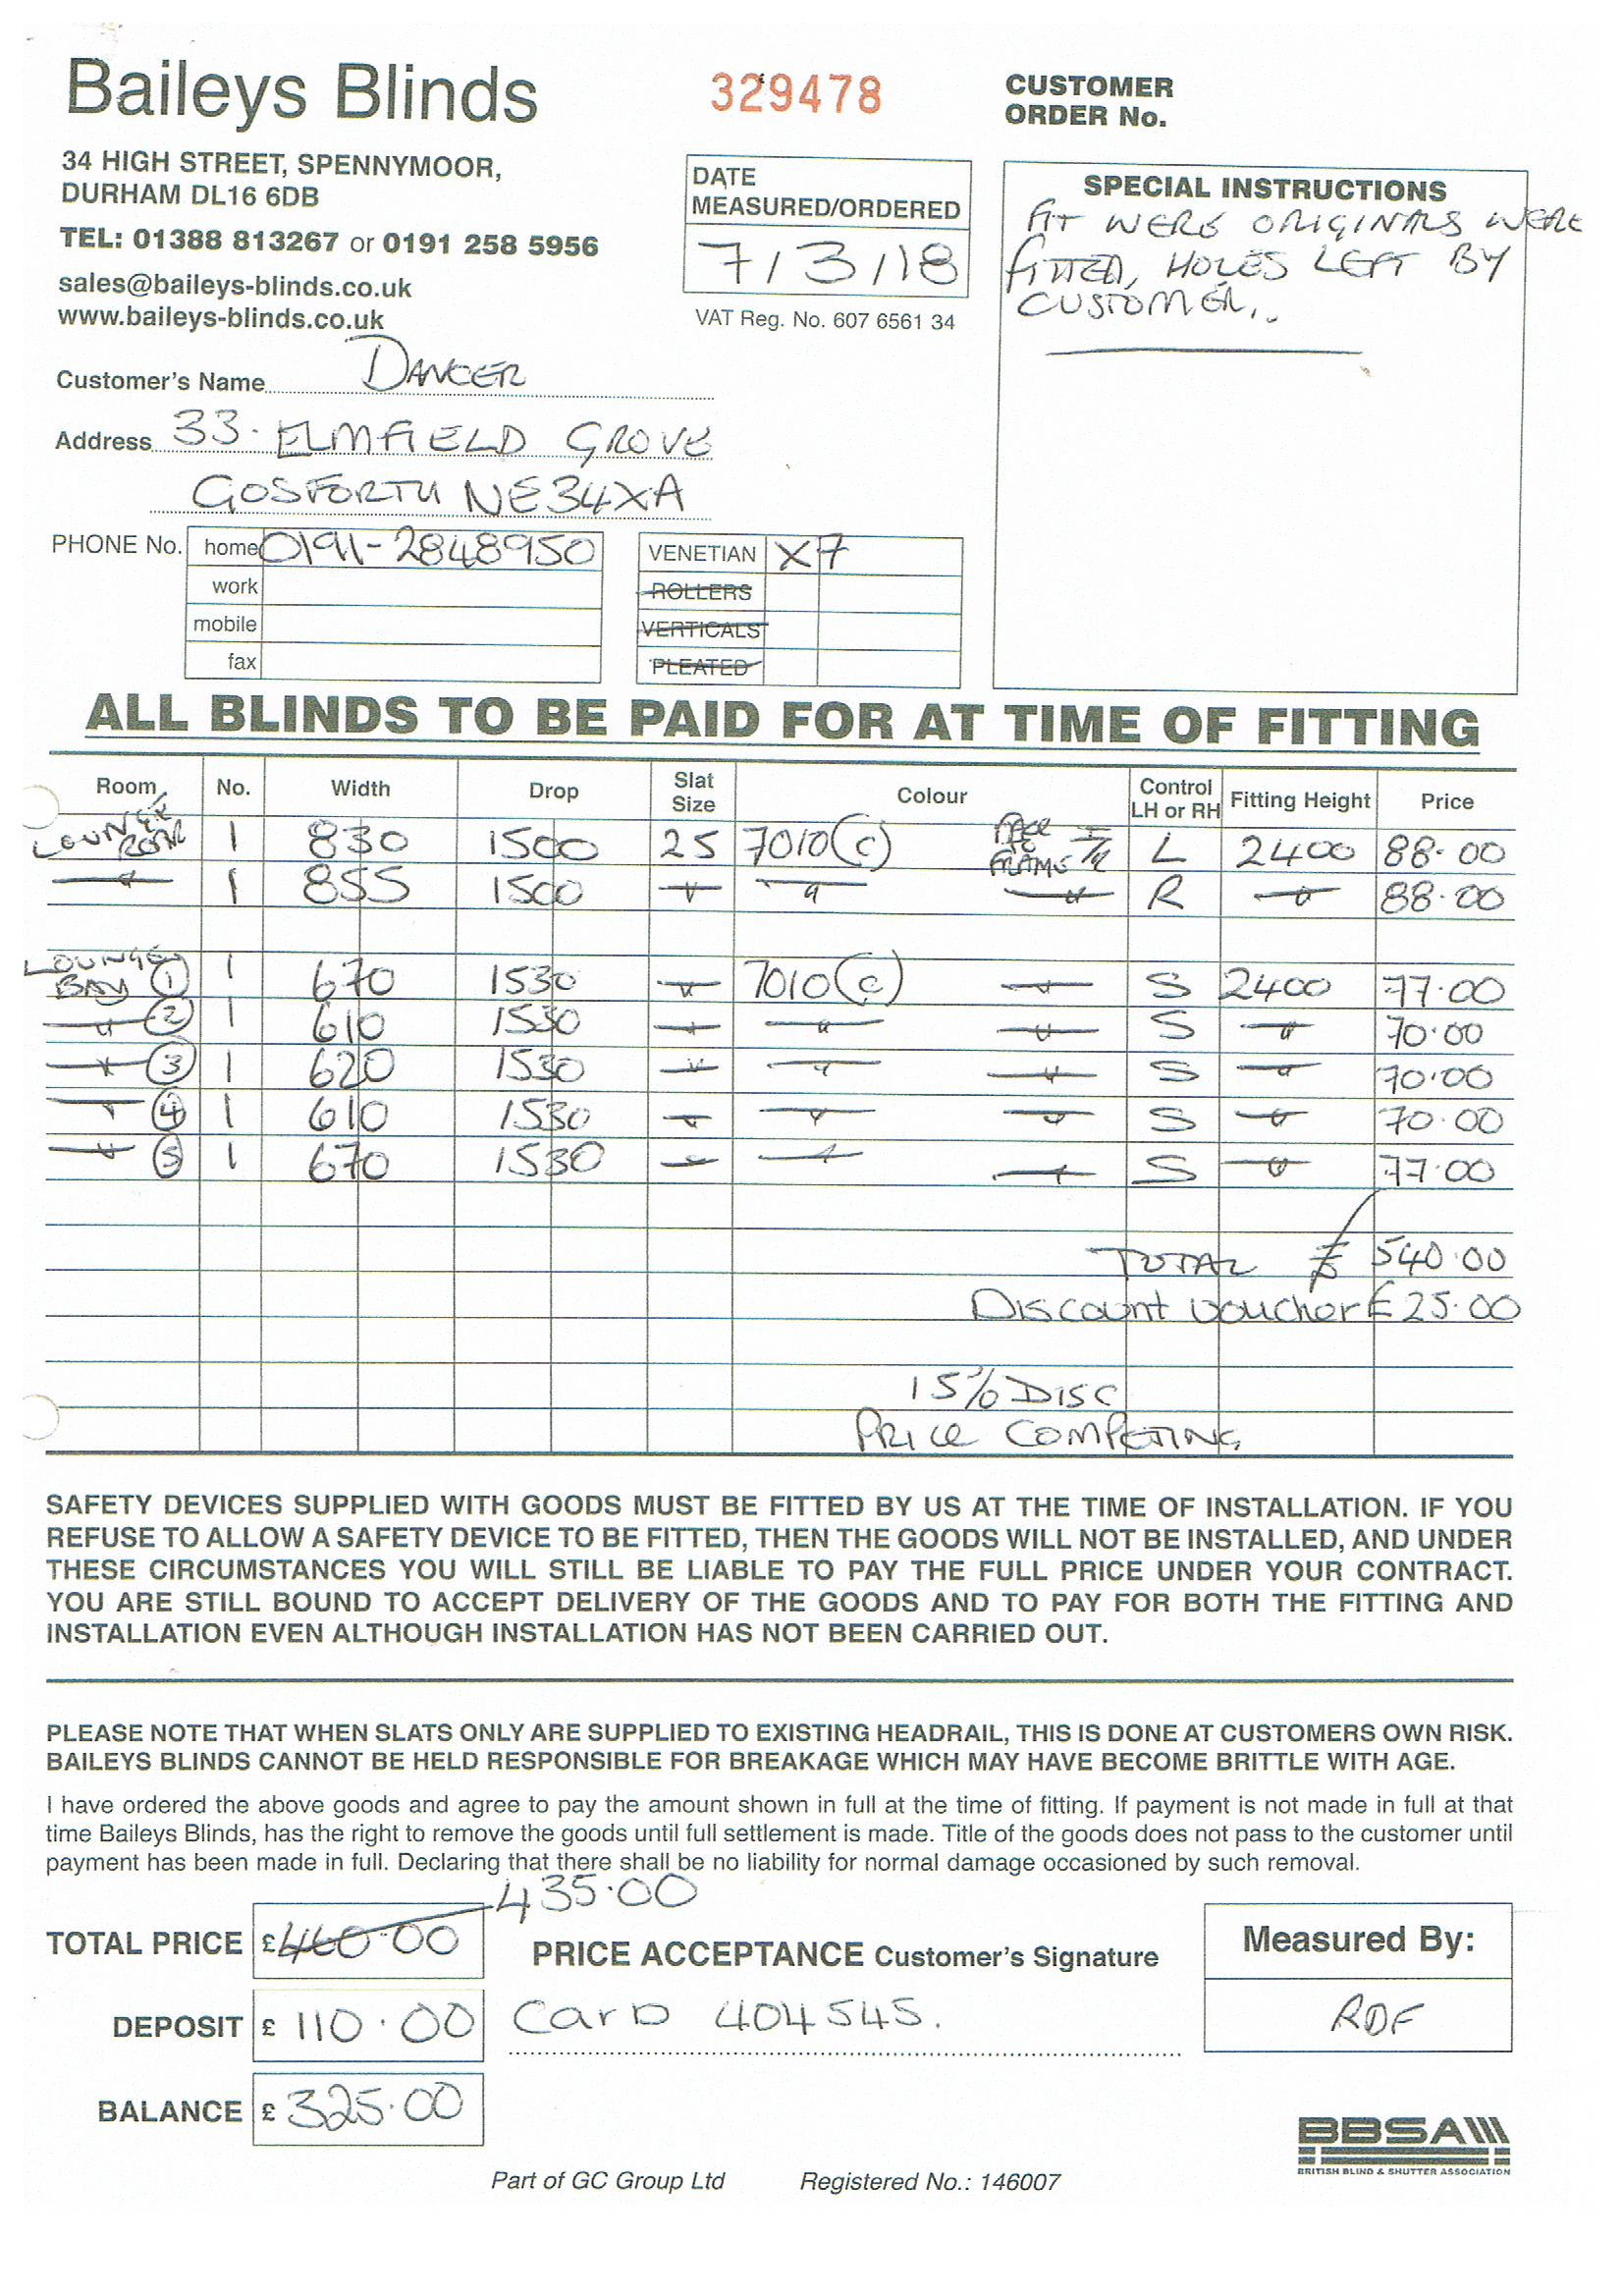 Baileys Blinds
329478
CUSTOMER
ORDER No.
34 HIGH STREET, SPENNYMOOR,
DURHAM DL16 6DB
TEL: 01388 813267 or 0191 258 5956
sales@baileys-blinds.co.uk
www.baileys-blinds.co.uk
DATE
MEASURED/ORDERED
7/3/18
VAT Reg. No. 607 6561 34
SPECIAL INSTRUCTIONS
FIT WERE ORIGINALS WERE
FITTED, HOLES LEFT BY
CUSTOMER..
Customer's Name DANCER
Address 33. ELMFIELD GROVE
GOSFORTH NE34XA
PHONE No. home 0191-2848950
work
mobile
fax
VENETIAN X7
ROLLERS
VERTICALS
PLEATED
ALL BLINDS TO BE PAID FOR AT TIME OF FITTING
Room No. Width Drop Slat Size Colour Control LH or RH Fitting Height Price
LOUNGE REAR 1 830 1500 25 7010(C) FACE TO FRAME L 2400 88.00
" 1 855 1500 " " " R " 88.00
LOUNGE BAY 1 1 670 1530 " 7010(C) " S 2400 77.00
" 2 1 610 1530 " " " S " 70.00
" 3 1 620 1530 " " " S " 70.00
" 4 1 610 1530 " " " S " 70.00
" 5 1 670 1530 " " " S " 77.00
TOTAL £ 540.00
Discount voucher £25.00
15% DISC
PRICE COMPETING
SAFETY DEVICES SUPPLIED WITH GOODS MUST BE FITTED BY US AT THE TIME OF INSTALLATION. IF YOU
REFUSE TO ALLOW A SAFETY DEVICE TO BE FITTED, THEN THE GOODS WILL NOT BE INSTALLED, AND UNDER
THESE CIRCUMSTANCES YOU WILL STILL BE LIABLE TO PAY THE FULL PRICE UNDER YOUR CONTRACT.
YOU ARE STILL BOUND TO ACCEPT DELIVERY OF THE GOODS AND TO PAY FOR BOTH THE FITTING AND
INSTALLATION EVEN ALTHOUGH INSTALLATION HAS NOT BEEN CARRIED OUT.
PLEASE NOTE THAT WHEN SLATS ONLY ARE SUPPLIED TO EXISTING HEADRAIL, THIS IS DONE AT CUSTOMERS OWN RISK.
BAILEYS BLINDS CANNOT BE HELD RESPONSIBLE FOR BREAKAGE WHICH MAY HAVE BECOME BRITTLE WITH AGE.
I have ordered the above goods and agree to pay the amount shown in full at the time of fitting. If payment is not made in full at that
time Baileys Blinds, has the right to remove the goods until full settlement is made. Title of the goods does not pass to the customer until
payment has been made in full. Declaring that there shall be no liability for normal damage occasioned by such removal.
435.00
TOTAL PRICE £460.00
PRICE ACCEPTANCE Customer's Signature
Measured By:
DEPOSIT £ 110.00
Card 404545.
RDF
BALANCE £ 325.00
BBSA
BRITISH BLIND & SHUTTER ASSOCIATION
Part of GC Group Ltd Registered No.: 146007